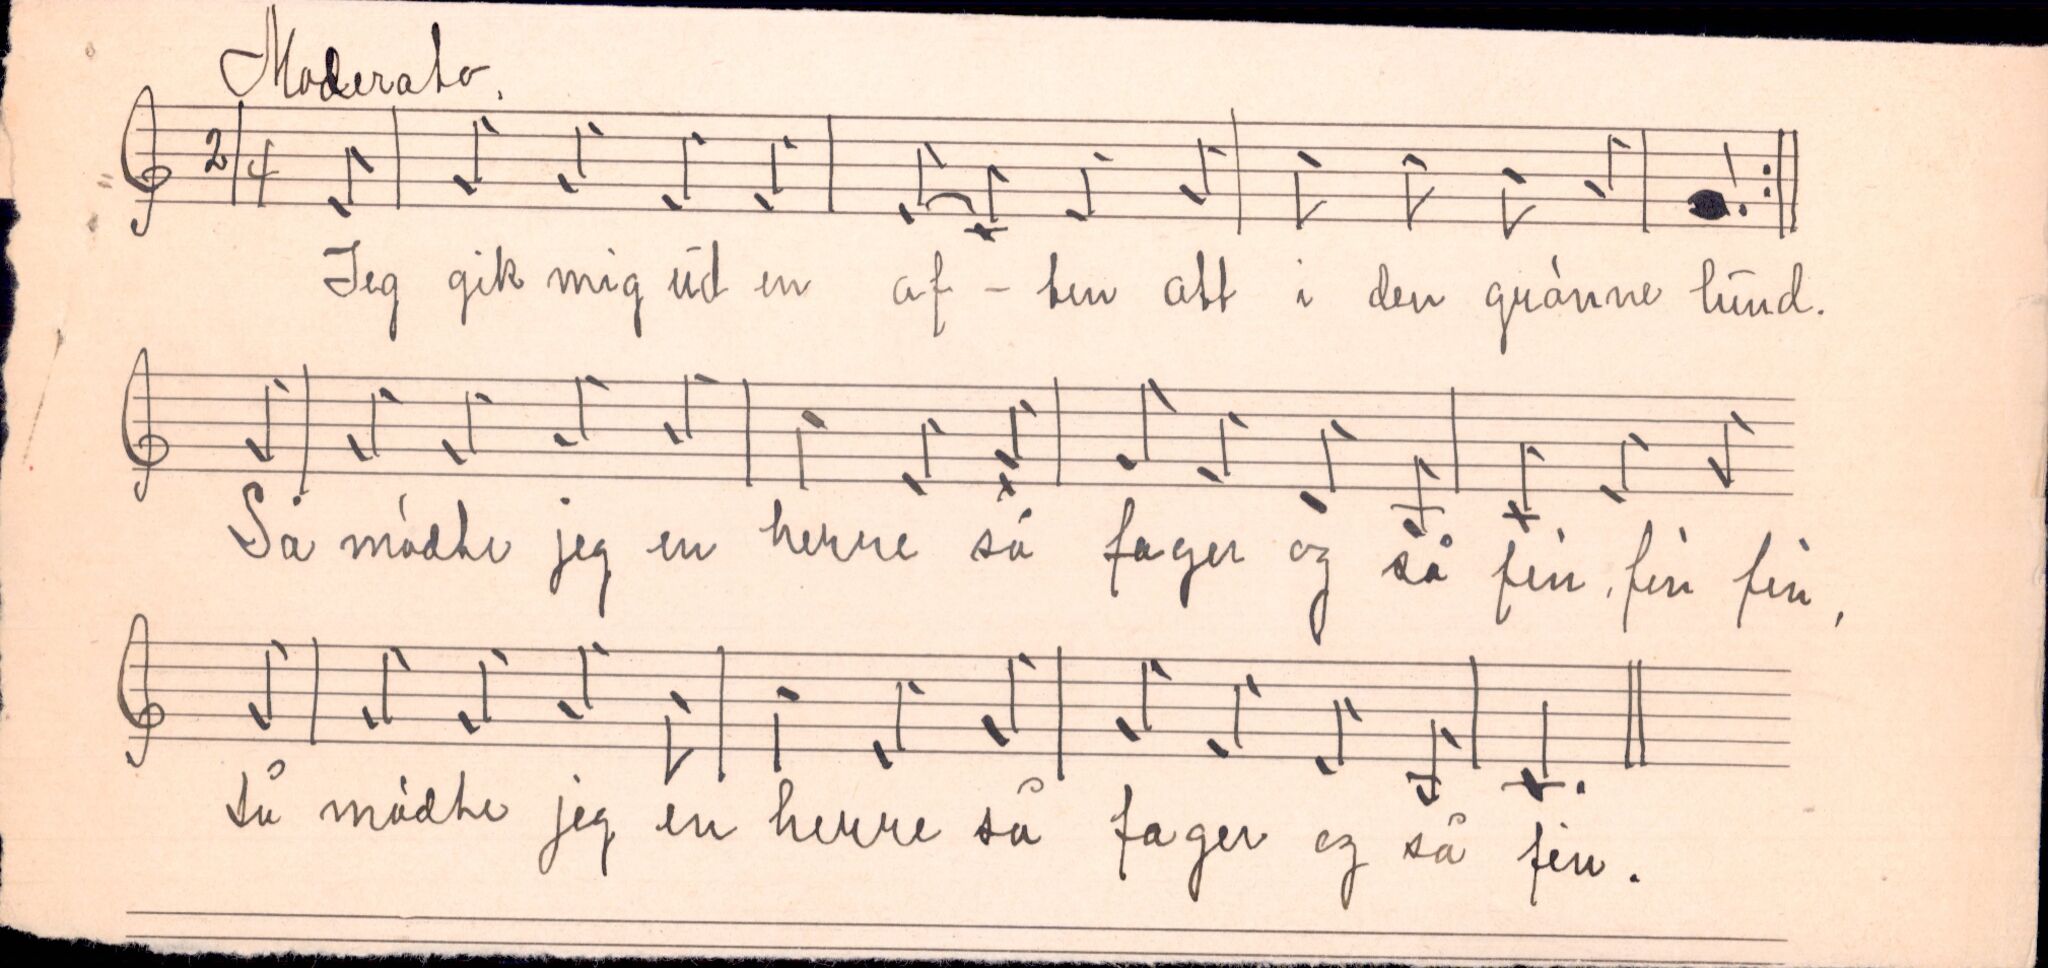 Moderato.
2/4
Jeg gik mig ūd en af - ten att i den grånne lūnd.
Så mådte jeg en herre så fager og så fin, fin fin,
så mådte jeg en herre så fager og så fin.